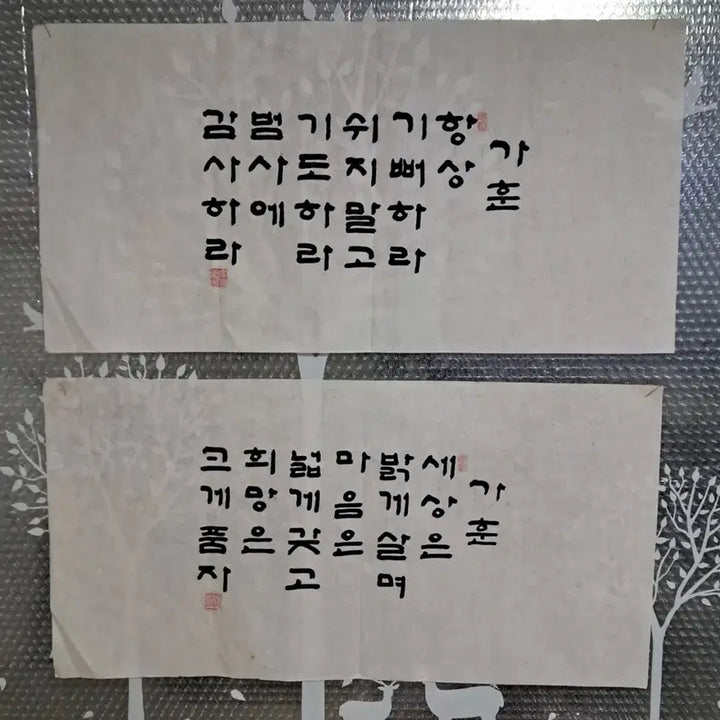 가훈
항상
기뻐하라
쉬지말고
기도하라
범사에
감사하라
가훈
세상은
밝게살며
마음은
넓게갖고
희망은
크게품자